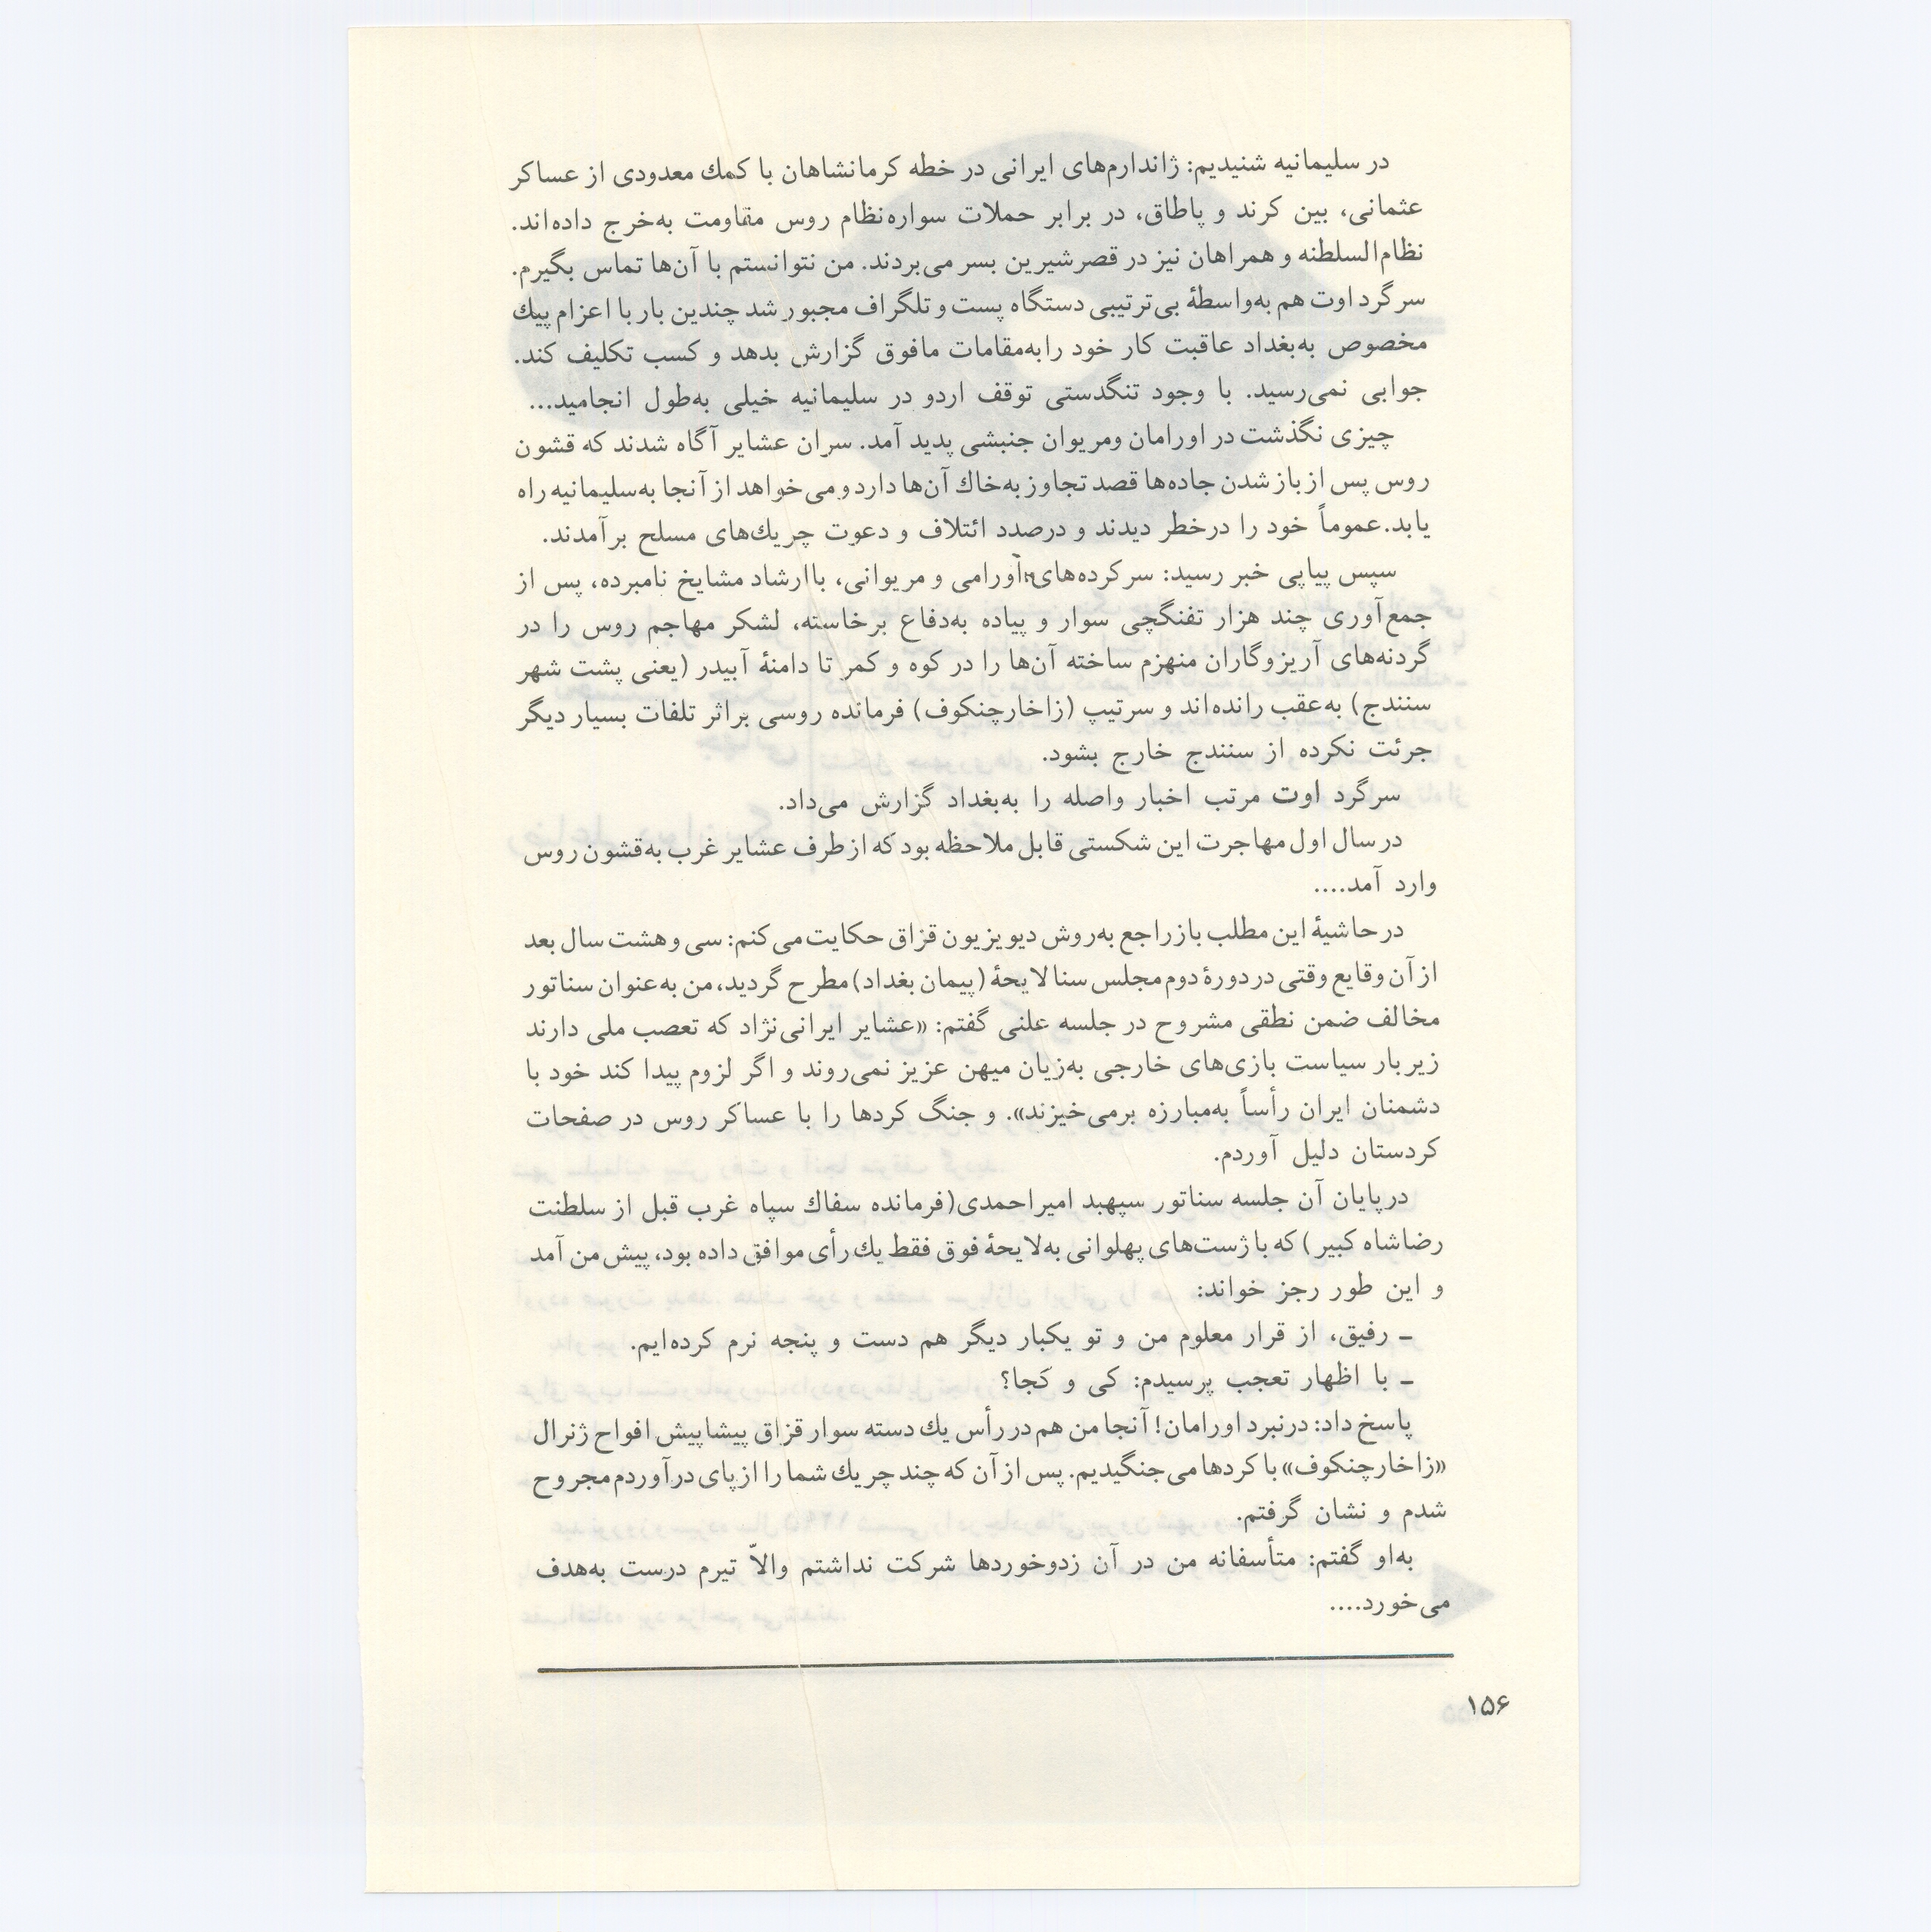 در سلیمانیه شنیدیم: ژاندارم‌های ایرانی در خطه کرمانشاهان با کمك معدودی از عساکر
عثمانی، بین کرند و پاطاق، در برابر حملات سواره‌نظام روس مقاومت به‌خرج داده‌اند.
نظام‌السلطنه و همراهان نیز در قصرشیرین بسر می‌بردند. من نتوانستم با آن‌ها تماس بگیرم.
سرگرد اوت هم به‌واسطهٔ بی‌ترتیبی دستگاه پست و تلگراف مجبور شد چندین بار با اعزام پیك
مخصوص به‌بغداد عاقبت کار خود را به‌مقامات مافوق گزارش بدهد و کسب تکلیف کند.
جوابی نمی‌رسید. با وجود تنگدستی توقف اردو در سلیمانیه خیلی به‌طول انجامید...
چیزی نگذشت در اورامان ومریوان جنبشی پدید آمد. سران عشایر آگاه شدند که قشون
روس پس از باز شدن جاده‌ها قصد تجاوز به‌خاك آن‌ها دارد و می‌خواهد از آنجا به‌سلیمانیه راه
یابد. عموماً خود را درخطر دیدند و درصدد ائتلاف و دعوت چریك‌های مسلح برآمدند.
سپس پیاپی خبر رسید: سرکرده‌های اورامی و مریوانی، باارشاد مشایخ نامبرده، پس از
جمع‌آوری چند هزار تفنگچی سوار و پیاده به‌دفاع برخاسته، لشکر مهاجم روس را در
گردنه‌های آریزوگاران منهزم ساخته آن‌ها را در کوه و کمر تا دامنهٔ آبیدر (یعنی پشت شهر
سنندج) به‌عقب رانده‌اند و سرتیپ (زاخارچنکوف) فرمانده روسی براثر تلفات بسیار دیگر
جرئت نکرده از سنندج خارج بشود.
سرگرد اوت مرتب اخبار واصله را به‌بغداد گزارش می‌داد.
در سال اول مهاجرت این شکستی قابل ملاحظه بود که از طرف عشایر غرب به‌قشون روس
وارد آمد....
در حاشیهٔ این مطلب باز راجع به‌روش دیویزیون قزاق حکایت می‌کنم: سی و هشت سال بعد
از آن وقایع وقتی در دورهٔ دوم مجلس سنا لایحهٔ (پیمان بغداد) مطرح گردید، من به‌عنوان سناتور
مخالف ضمن نطقی مشروح در جلسه علنی گفتم: «عشایر ایرانی‌نژاد که تعصب ملی دارند
زیر بار سیاست بازی‌های خارجی به‌زیان میهن عزیز نمی‌روند و اگر لزوم پیدا کند خود با
دشمنان ایران رأساً به‌مبارزه برمی‌خیزند». و جنگ کردها را با عساکر روس در صفحات
کردستان دلیل آوردم.
درپایان آن جلسه سناتور سپهبد امیراحمدی(فرمانده سفاك سپاه غرب قبل از سلطنت
رضاشاه کبیر) که با ژست‌های پهلوانی به‌لایحهٔ فوق فقط یك رأی موافق داده بود، پیش من آمد
و این طور رجز خواند:
ـ رفیق، از قرار معلوم من و تو یکبار دیگر هم دست و پنجه نرم کرده‌ایم.
ـ با اظهار تعجب پرسیدم: کی و کجا؟
پاسخ داد: درنبرد اورامان! آنجا من هم در رأس یك دسته سوار قزاق پیشاپیش افواج ژنرال
«زاخارچنکوف» با کردها می‌جنگیدیم. پس از آن که چند چریك شما را از پای درآوردم مجروح
شدم و نشان گرفتم.
به‌او گفتم: متأسفانه من در آن زدوخوردها شرکت نداشتم والاّ تیرم درست به‌هدف
می‌خورد....
۱۵۶